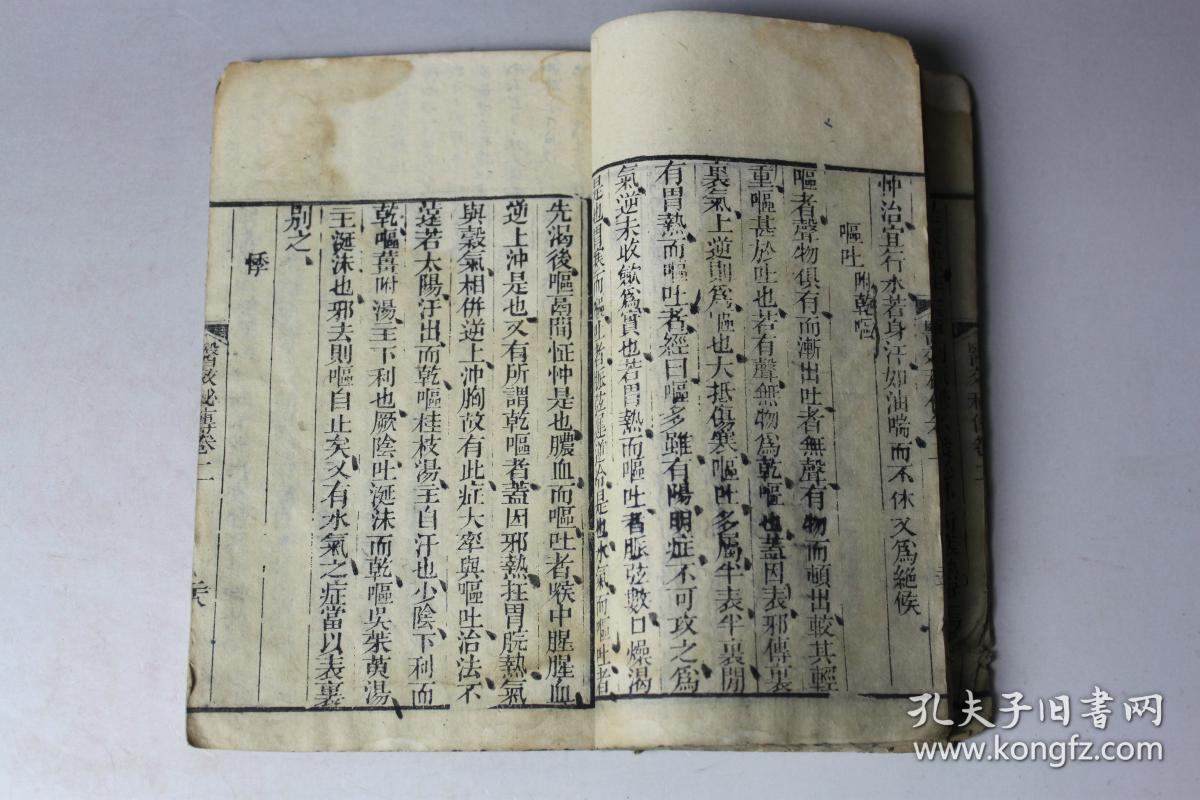 忡治宜行水若身汗如油喘而不休又爲絶候
嘔吐 附乾嘔
嘔者聲物俱有而漸出吐者無聲有物而頓出較其輕
重嘔甚於吐也若有聲無物爲乾嘔也蓋因表邪傳裏
裏氣上逆則爲嘔也大抵傷寒嘔吐多屬半表半裏間
有胃熱而嘔吐者經曰嘔多雖有陽明症不可攻之爲
氣逆未收斂爲實也若胃熱而嘔吐者脈弦數口燥渴
是也胃寒而嘔吐者脈弦遲逆冷是也水氣而嘔吐者
先渴後嘔膈間怔忡是也膿血而嘔吐者喉中腥腥血
逆上沖是也又有所謂乾嘔者蓋因邪熱在胃脘熱氣
與穀氣相併逆上沖胸故有此症大率與嘔吐治法不
遠若太陽汗出而乾嘔桂枝湯主自汗也少陰下利而
乾嘔薑附湯主下利也厥陰吐涎沫而乾嘔吳茱萸湯
主涎沫也邪去則嘔自止矣又有水氣之症當以表裏
別之
悸
卷二
孔夫子旧书网
www.kongfz.com